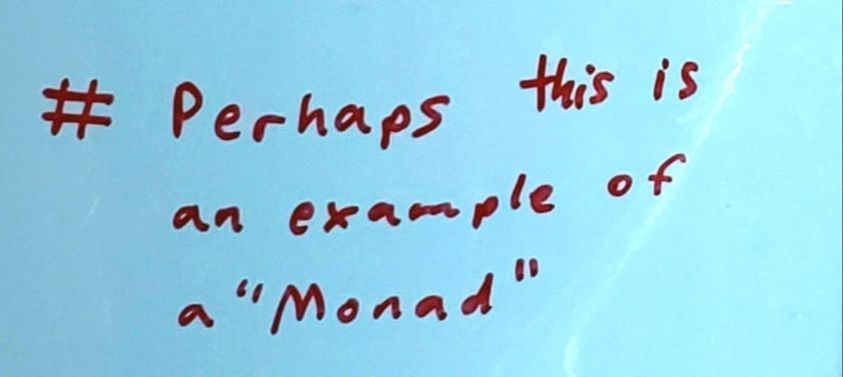 # Perhaps this is
an example of
a "Monad"